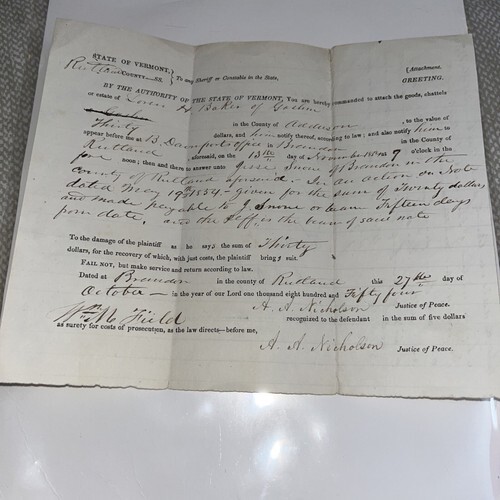 STATE OF VERMONT, [Attachment.
Rutland COUNTY—SS. } To any Sheriff or Constable in the State, GREETING.
BY THE AUTHORITY OF THE STATE OF VERMONT, You are hereby commanded to attach the goods, chattels
or estate of H Baker of Goshen
in the County of Addison, to the value of
Thirty dollars, and him notify thereof according to law; and also notify him to
appear before me at B. Davenports office in Brandon in the County of
Rutland aforesaid, on the 13th day of November 1854 at 9 o'clock in the
fore noon; then and there to answer unto Jesse Snow of Brandon in the
county of Rutland aforesaid. In an action on Note
dated May 1854 given for the sum of Twenty dollars
and made payable to J. Snow or bearer Fifteen days
from date, and the Pltff. is the bearer of said note
To the damage of the plaintiff as he says the sum of Thirty
dollars, for the recovery of which, with just costs, the plaintiff bring s suit.
FAIL NOT, but make service and return according to law.
Dated at Brandon in the county of Rutland this 27th day of
October in the year of our Lord one thousand eight hundred and Fifty four
A. A. Nicholson Justice of Peace.
Wm M. Field recognized to the defendant in the sum of five dollars
as surety for costs of prosecution, as the law directs—before me,
A. A. Nicholson Justice of Peace.